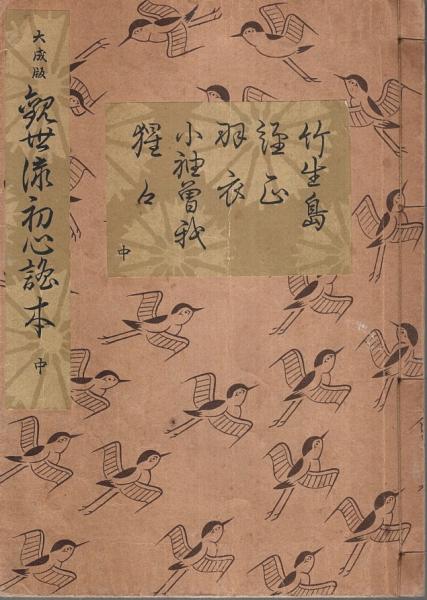 大成版 觀世流初心謠本 中
竹生島
經正
羽衣
小袖曽我
猩々
中